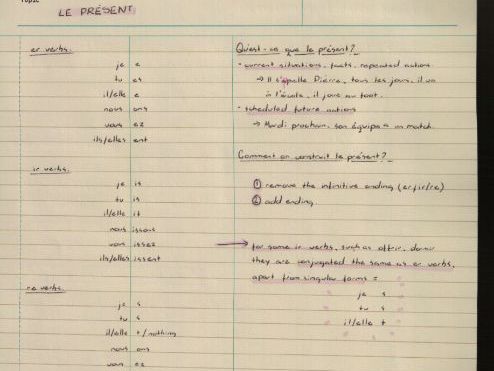 Topic
LE PRÉSENT
er verbs.
je e
tu es
il/elle e
nous ons
vous ez
ils/elles ent
ir verbs.
je is
tu is
il/elle it
nous issons
vous issez
ils/elles issent
re verbs.
je s
tu s
il/elle t/nothing
nous ons
vous ez
Qu'est-ce que le présent?
- current situations, facts, repeated actions.
→ Il s'appelle Pierre, tous les jours, il va
à l'école, il joue au foot.
- scheduled future actions
→ Mardi prochain, son équipe a un match.
Comment on construit le présent?
① remove the infinitive ending (er/ir/re)
② add ending
→ for some ir verbs, such as offrir, dormir
they are conjugated the same as er verbs,
apart from singular forms =
je s
tu s
il/elle t